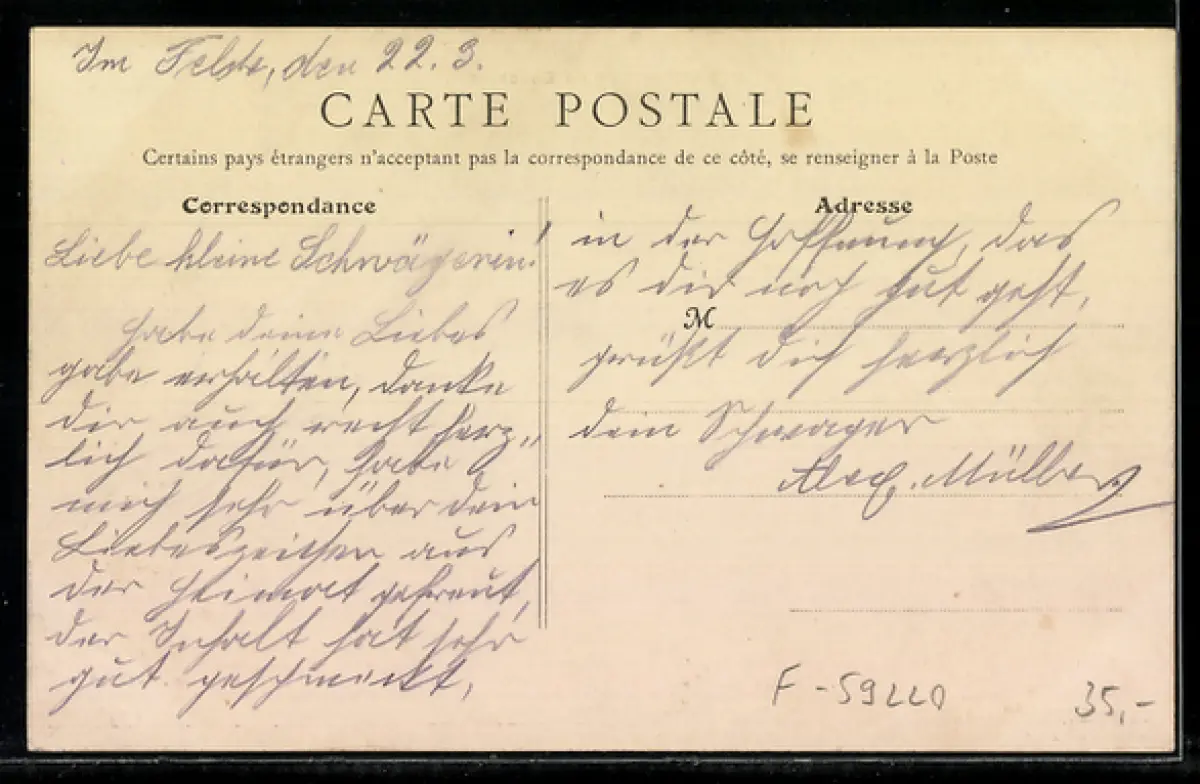 Im Felde, den 22. 3.
CARTE POSTALE
Certains pays étrangers n'acceptant pas la correspondance de ce côté, se renseigner à la Poste
Correspondance
Liebe kleine Schwägerin!
Habe deine Liebes
gabe erhalten, danke
dir auch recht herz"
lich dafür, habe
mich sehr über dein
Liebeszeichen aus
der Heimat gefreut,
der Inhalt hat sehr
gut geschmeckt,
Adresse
in der Hoffnung, das
es dir noch gut geht,
M
grüßt dich herzlich
dein Schwager
Müller
F-59220
35,-